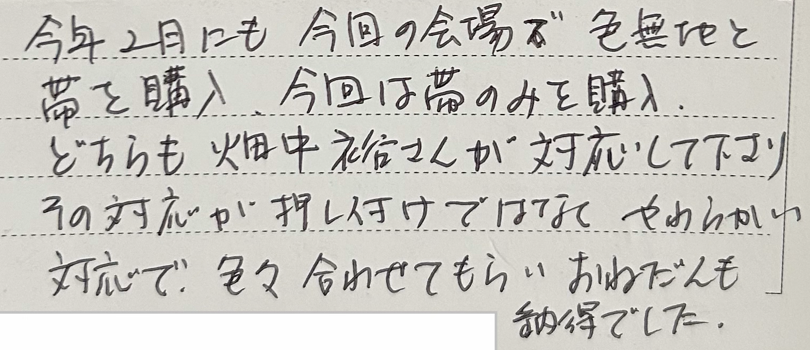 今年2月にも 今回の会場で 色無地と
帯を購入、今回は帯のみを購入.
どちらも 畑中 裕さんが 対応して下さり
その対応が 押し付けではなくて やわらかい
対応で. 色々 合わせてもらい おねだんも
納得でした.